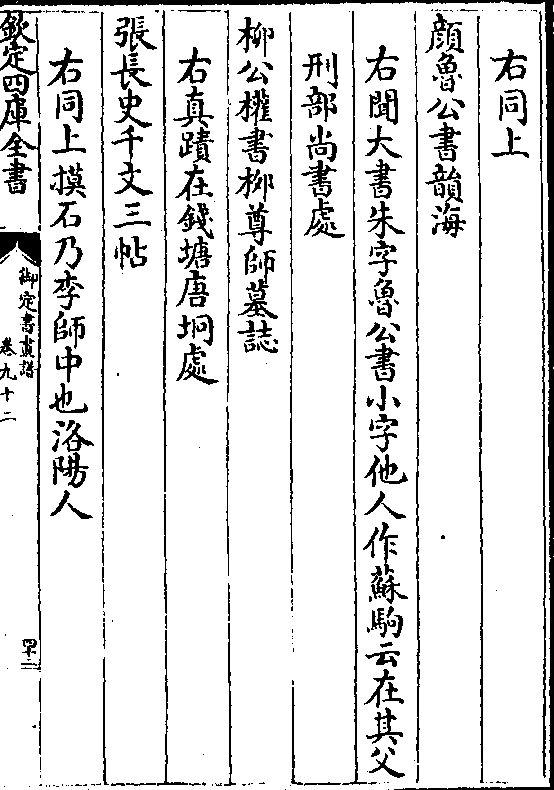 右同上
顔魯公書韻海
右聞大書朱字魯公書小字他人作蘇駒云在其父
刑部尚書處
柳公權書柳尊師墓誌
右真蹟在錢塘唐坰處
張長史千文三帖
右同上摸石乃李師中也洛陽人
欽定四庫全書
御定書畫譜
卷九十二
四十二